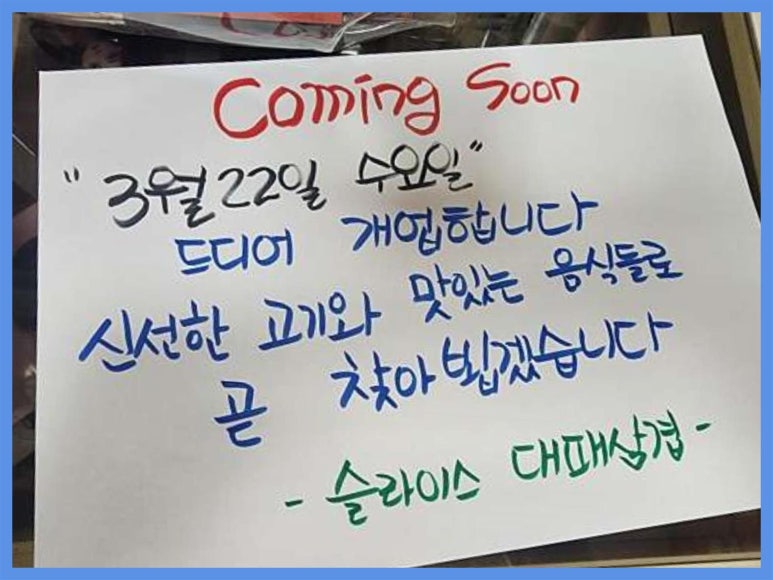 Coming Soon
"3월 22일 수요일"
드디어 개업합니다
신선한 고기와 맛있는 음식들로
곧 찾아 뵙겠습니다
- 슬라이스 대패삼겹 -